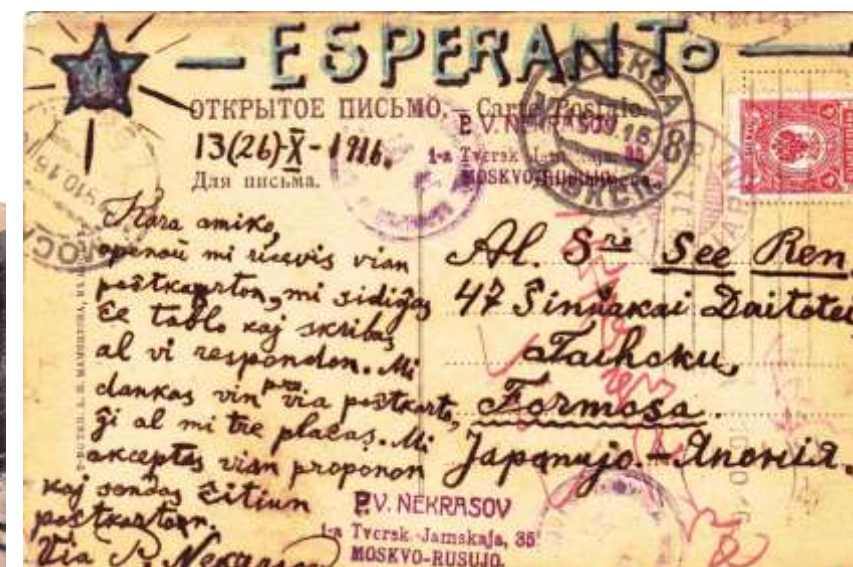 — ESPERANTO —
ОТКРЫТОЕ ПИСЬМО. — Carte Postale.
13(26)-X-1916.
Для письма.
P. V. NEKRASOV
1-a Tversk. Jamskaja, 35
MOSKVO-RUSUJO.
МОСКВА
16
8
Kara amiko,
apenaŭ mi ricevis vian
poŝtkarton, mi sidiĝas
ĉe tablo kaj skribas
al vi respondon. Mi
dankas vin pro via poŝtkarto,
ĝi al mi tre plaĉas. Mi
akceptas vian proponon
kaj sendas ĉi tiun
poŝtkarton.
Via P. Nekrasov
Al. Sro See Ren,
47 Sinŝakai Daitotei
Taihoku,
Formosa.
Japanujo. — Японія.
P.V. NEKRASOV
1-a Tversk.-Jamskaja, 35
MOSKVO-RUSUJO.